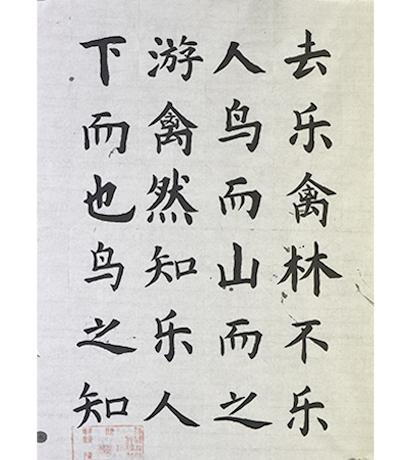 下游人去
而禽鸟乐
也然而禽
鸟知山林
之乐而不
知人之乐